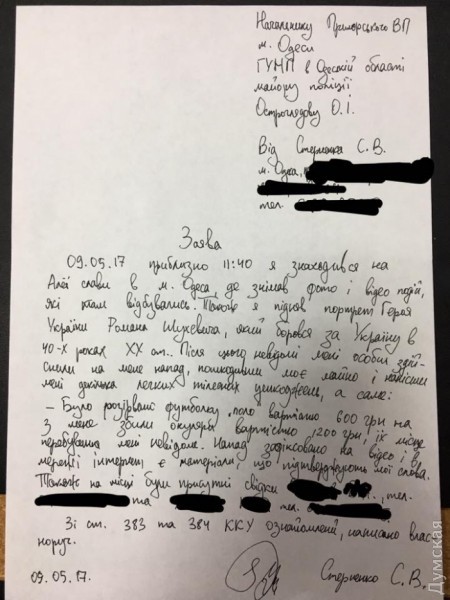 Начальнику Приморського ВП
м. Одеси
ГУНП в Одеській області
майору поліції
Остроглядову О.І.
Від Стерненка С.В.
м. Одеса,
тел.
Заява
09.05.17 приблизно 11:40 я знаходився на
Алеї слави в м. Одеса, де знімав фото і відео подій,
які там відбувались. Також я підняв портрет Героя
України Романа Шухевича, який боровся за Україну в
40-х роках ХХ ст. Після цього невідомі мені особи здій-
снили на мене напад, пошкодивши моє майно і нанісши
мені декілька легких тілесних ушкоджень, а саме:
– Було розірвано футболку поло вартістю 600 грн
З мене збили окуляри вартістю 1200 грн, їх місце
перебування мені невідоме. Напад зафіксовано на відео і в
мережі інтернет є матеріали, що підтверджують мої слова.
Також на місці були присутні свідки тел.
та тел.
Зі ст. 383 та 384 ККУ ознайомлений, написано влас-
норуч.
09.05.17. Стерненко С.В.
Думская